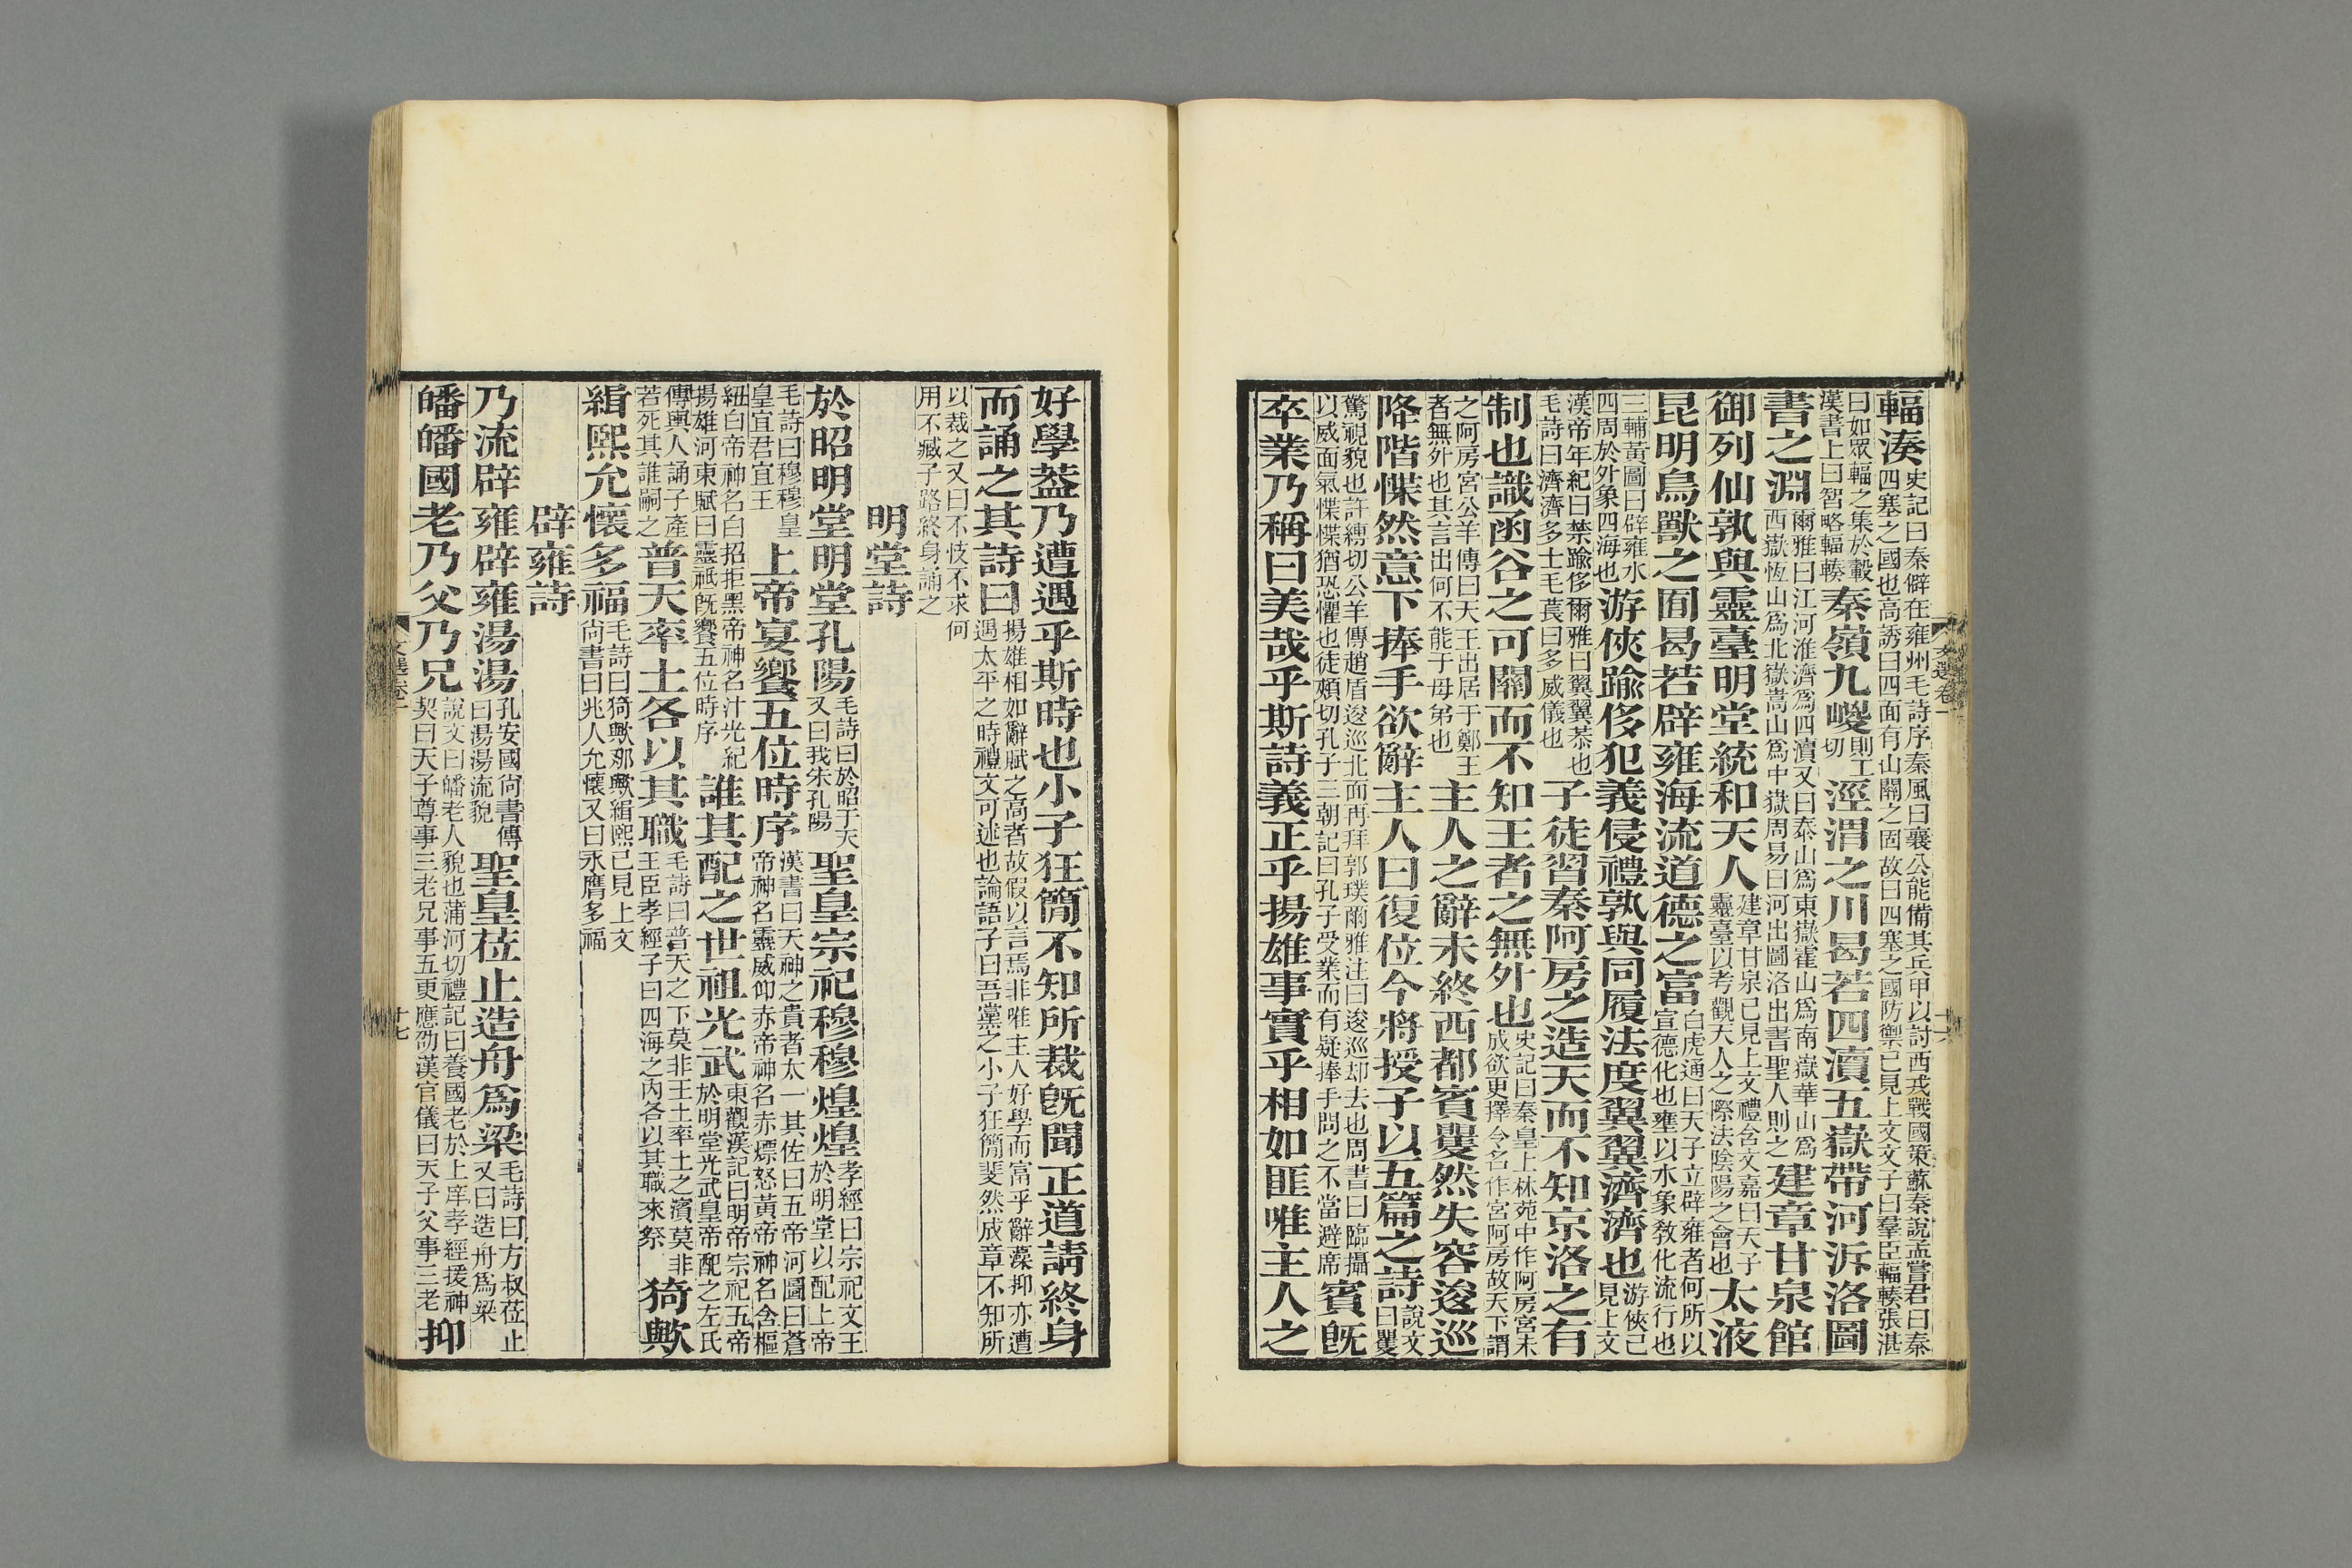 輻湊史記曰秦僻在雍州毛詩序秦風曰襄公能備其兵甲以討西戎戰國策蘇秦說孟嘗君曰秦四塞之國也高誘曰四面有山關之固故曰四塞之國防禦已見上文文子曰羣臣輻輳張湛
曰如眾輻之集於轂漢書上曰智略輻輳秦嶺九嵕則工切涇渭之川曷若四瀆五嶽帶河泝洛圖
書之淵爾雅曰江河淮濟爲四瀆又曰泰山爲東嶽霍山爲南嶽華山爲西嶽恆山爲北嶽嵩山爲中嶽周易曰河出圖洛出書聖人則之建章甘泉館
御列仙孰與靈臺明堂統和天人建章甘泉已見上文禮含文嘉曰天子靈臺以考觀天人之際法陰陽之會也太液
昆明鳥獸之囿曷若辟雍海流道德之富白虎通曰天子立辟雍者何所以宣德化也壅以水象教化流行也
三輔黃圖曰辟雍水四周於外象四海也游俠踰侈犯義侵禮孰與同履法度翼翼濟濟也游俠已見上文
漢帝年紀曰禁踰侈爾雅曰翼翼恭也毛詩曰濟濟多士毛萇曰多威儀也子徒習秦阿房之造天而不知京洛之有
制也識函谷之可關而不知王者之無外也史記曰秦皇上林苑中作阿房宮未成欲更擇令名作宮阿房故天下謂
之阿房宮公羊傳曰天王出居于鄭王者無外也其言出何不能于母弟也主人之辭未終西都賓矍然失容逡巡
降階惵然意下捧手欲辭主人曰復位今將授子以五篇之詩說文曰矍
驚視貌也許縛切公羊傳趙盾逡巡北面再拜郭璞爾雅注曰逡巡却去也周書曰臨攝以威面氣惵惵猶恐懼也徒頰切孔子三朝記曰孔子受業而有疑捧手問之不當避席賓既
卒業乃稱曰美哉乎斯詩義正乎揚雄事實乎相如匪唯主人之
好學葢乃遭遇乎斯時也小子狂簡不知所裁既聞正道請終身
而誦之其詩曰揚雄相如辭賦之高者故假以言焉非唯主人好學而富乎辭藻抑亦遭遇太平之時禮文可述也論語子曰吾黨之小子狂簡斐然成章不知所
以裁之又曰不忮不求何用不臧子路終身誦之
明堂詩
於昭明堂明堂孔陽毛詩曰於昭于天又曰我朱孔陽聖皇宗祀穆穆煌煌孝經曰宗祀文王於明堂以配上帝
毛詩曰穆穆皇皇宜君宜王上帝宴饗五位時序漢書曰天神之貴者太一其佐曰五帝河圖曰蒼帝神名靈威仰赤帝神名赤熛怒黃帝神名含樞
紐白帝神名白招拒黑帝神名汁光紀揚雄河東賦曰靈祇既饗五位時序誰其配之世祖光武東觀漢記曰明帝宗祀五帝於明堂光武皇帝配之左氏
傳輿人誦子產若死其誰嗣之普天率土各以其職毛詩曰普天之下莫非王土率土之濱莫非王臣孝經子曰四海之內各以其職來祭猗歟
緝熙允懷多福毛詩曰猗歟那歟緝熙已見上文尚書曰兆人允懷又曰永膺多福
辟雍詩
乃流辟雍辟雍湯湯孔安國尚書傳曰湯湯流貌聖皇莅止造舟爲梁毛詩曰方叔莅止又曰造舟爲梁
皤皤國老乃父乃兄說文曰皤老人貌也蒲河切禮記曰養國老於上庠孝經援神契曰天子尊事三老兄事五更應劭漢官儀曰天子父事三老抑
文選卷一
十七